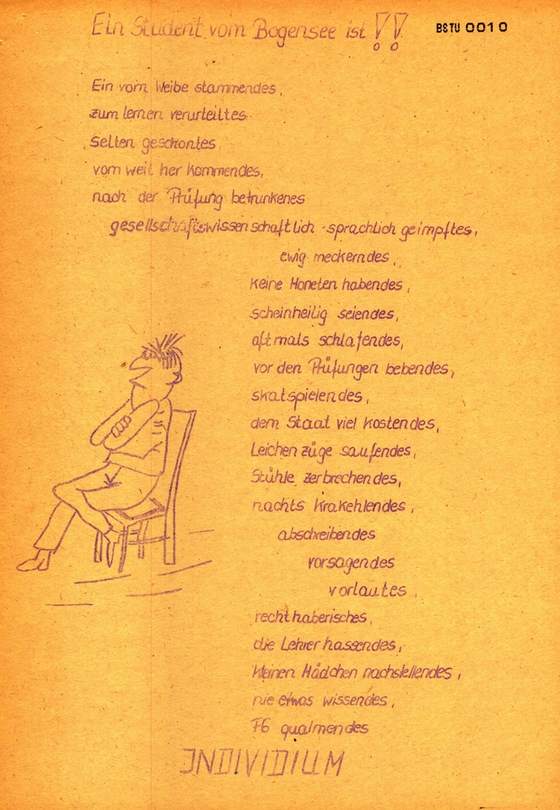 Ein Student vom Bogensee ist !!
BSTU 0010
Ein vom Weibe stammendes,
zum lernen verurteiltes
Selten geschontes,
vom weit her kommendes,
nach der Prüfung betrunkenes
gesellschaftswissenschaftlich - sprachlich geimpftes,
ewig meckerndes,
keine Moneten habendes,
scheinheilig seiendes,
oftmals schlafendes,
vor den Prüfungen bebendes,
skatspielendes,
dem Staat viel kostendes,
Leichenzüge saufendes,
Stühle zerbrechendes,
nachts krakehlendes,
abschreibendes
vorsagendes
vorlautes
rechthaberisches,
die Lehrer hassendes,
kleinen Mädchen nachstellendes,
nie etwas wissendes,
F6 qualmendes
INDIVIDIUM